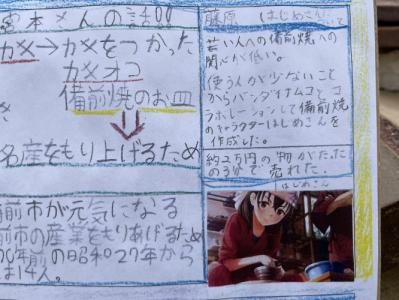 本さんの話!!
カメ→カメをつかった
カメオコ
備前焼のお皿
名産をもり上げるため
前市が元気になる
前市の産業をもりあげるため
年前の昭和27年から
は14人。
藤原 はじめさん
若い人への備前焼への
関心が低い。
使う人が少ないこと
からバンダイナムコとコ
ラボレーションして備前焼
のキャラクターはじめさんを
作成した。
約2万円の物がたった
の3分で売れた。
はじめさん